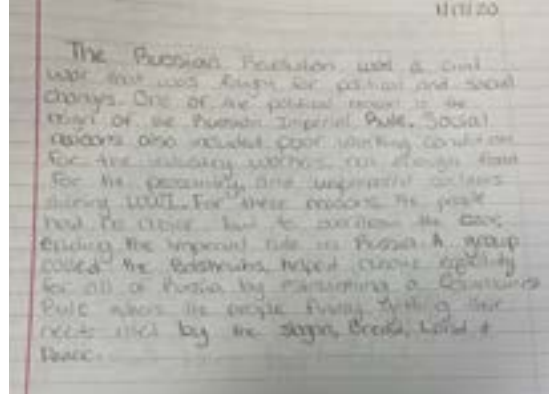 1/17/20
The Russian Revolution was a civil
war that was fought for political and social
changes. One of the political reason is the
reign of the Russian Imperial Rule. Social
reasons also included poor working conditions
for the industry workers, not enough food
for the peasantry, and unprepared soldiers
during WWI. For these reasons the people
had no choice but to overthrow the czar,
ending the imperial rule in Russia. A group
called the Bolsheviks, helped equality
for all of Russia by a
Rule where the people finally their
needs met by the slogan, Bread, Land +
Peace.